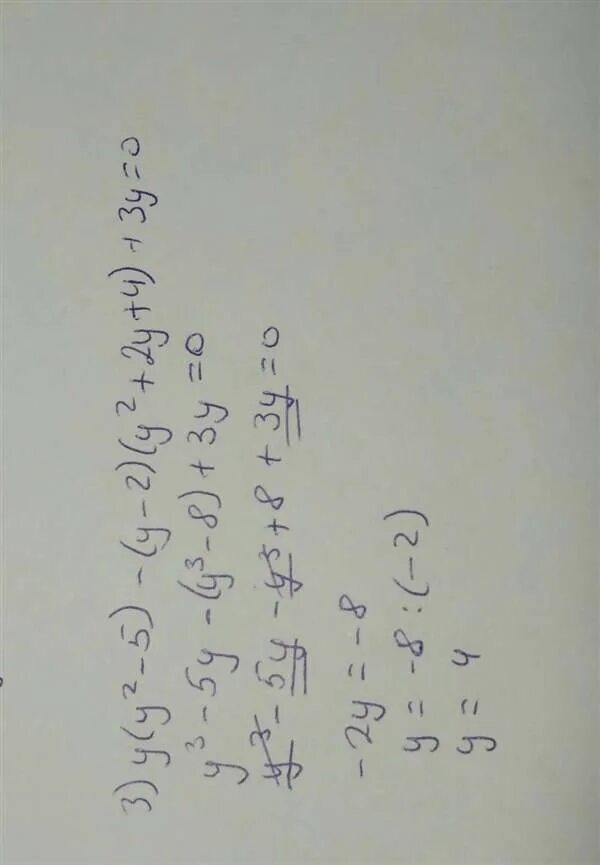 3) y(y²-5)-(y-2)(y²+2y+4)+3y=0
y³-5y-(y³-8)+3y=0
y³-5y-y³+8+3y=0
-2y=-8
y=-8:(-2)
y=4